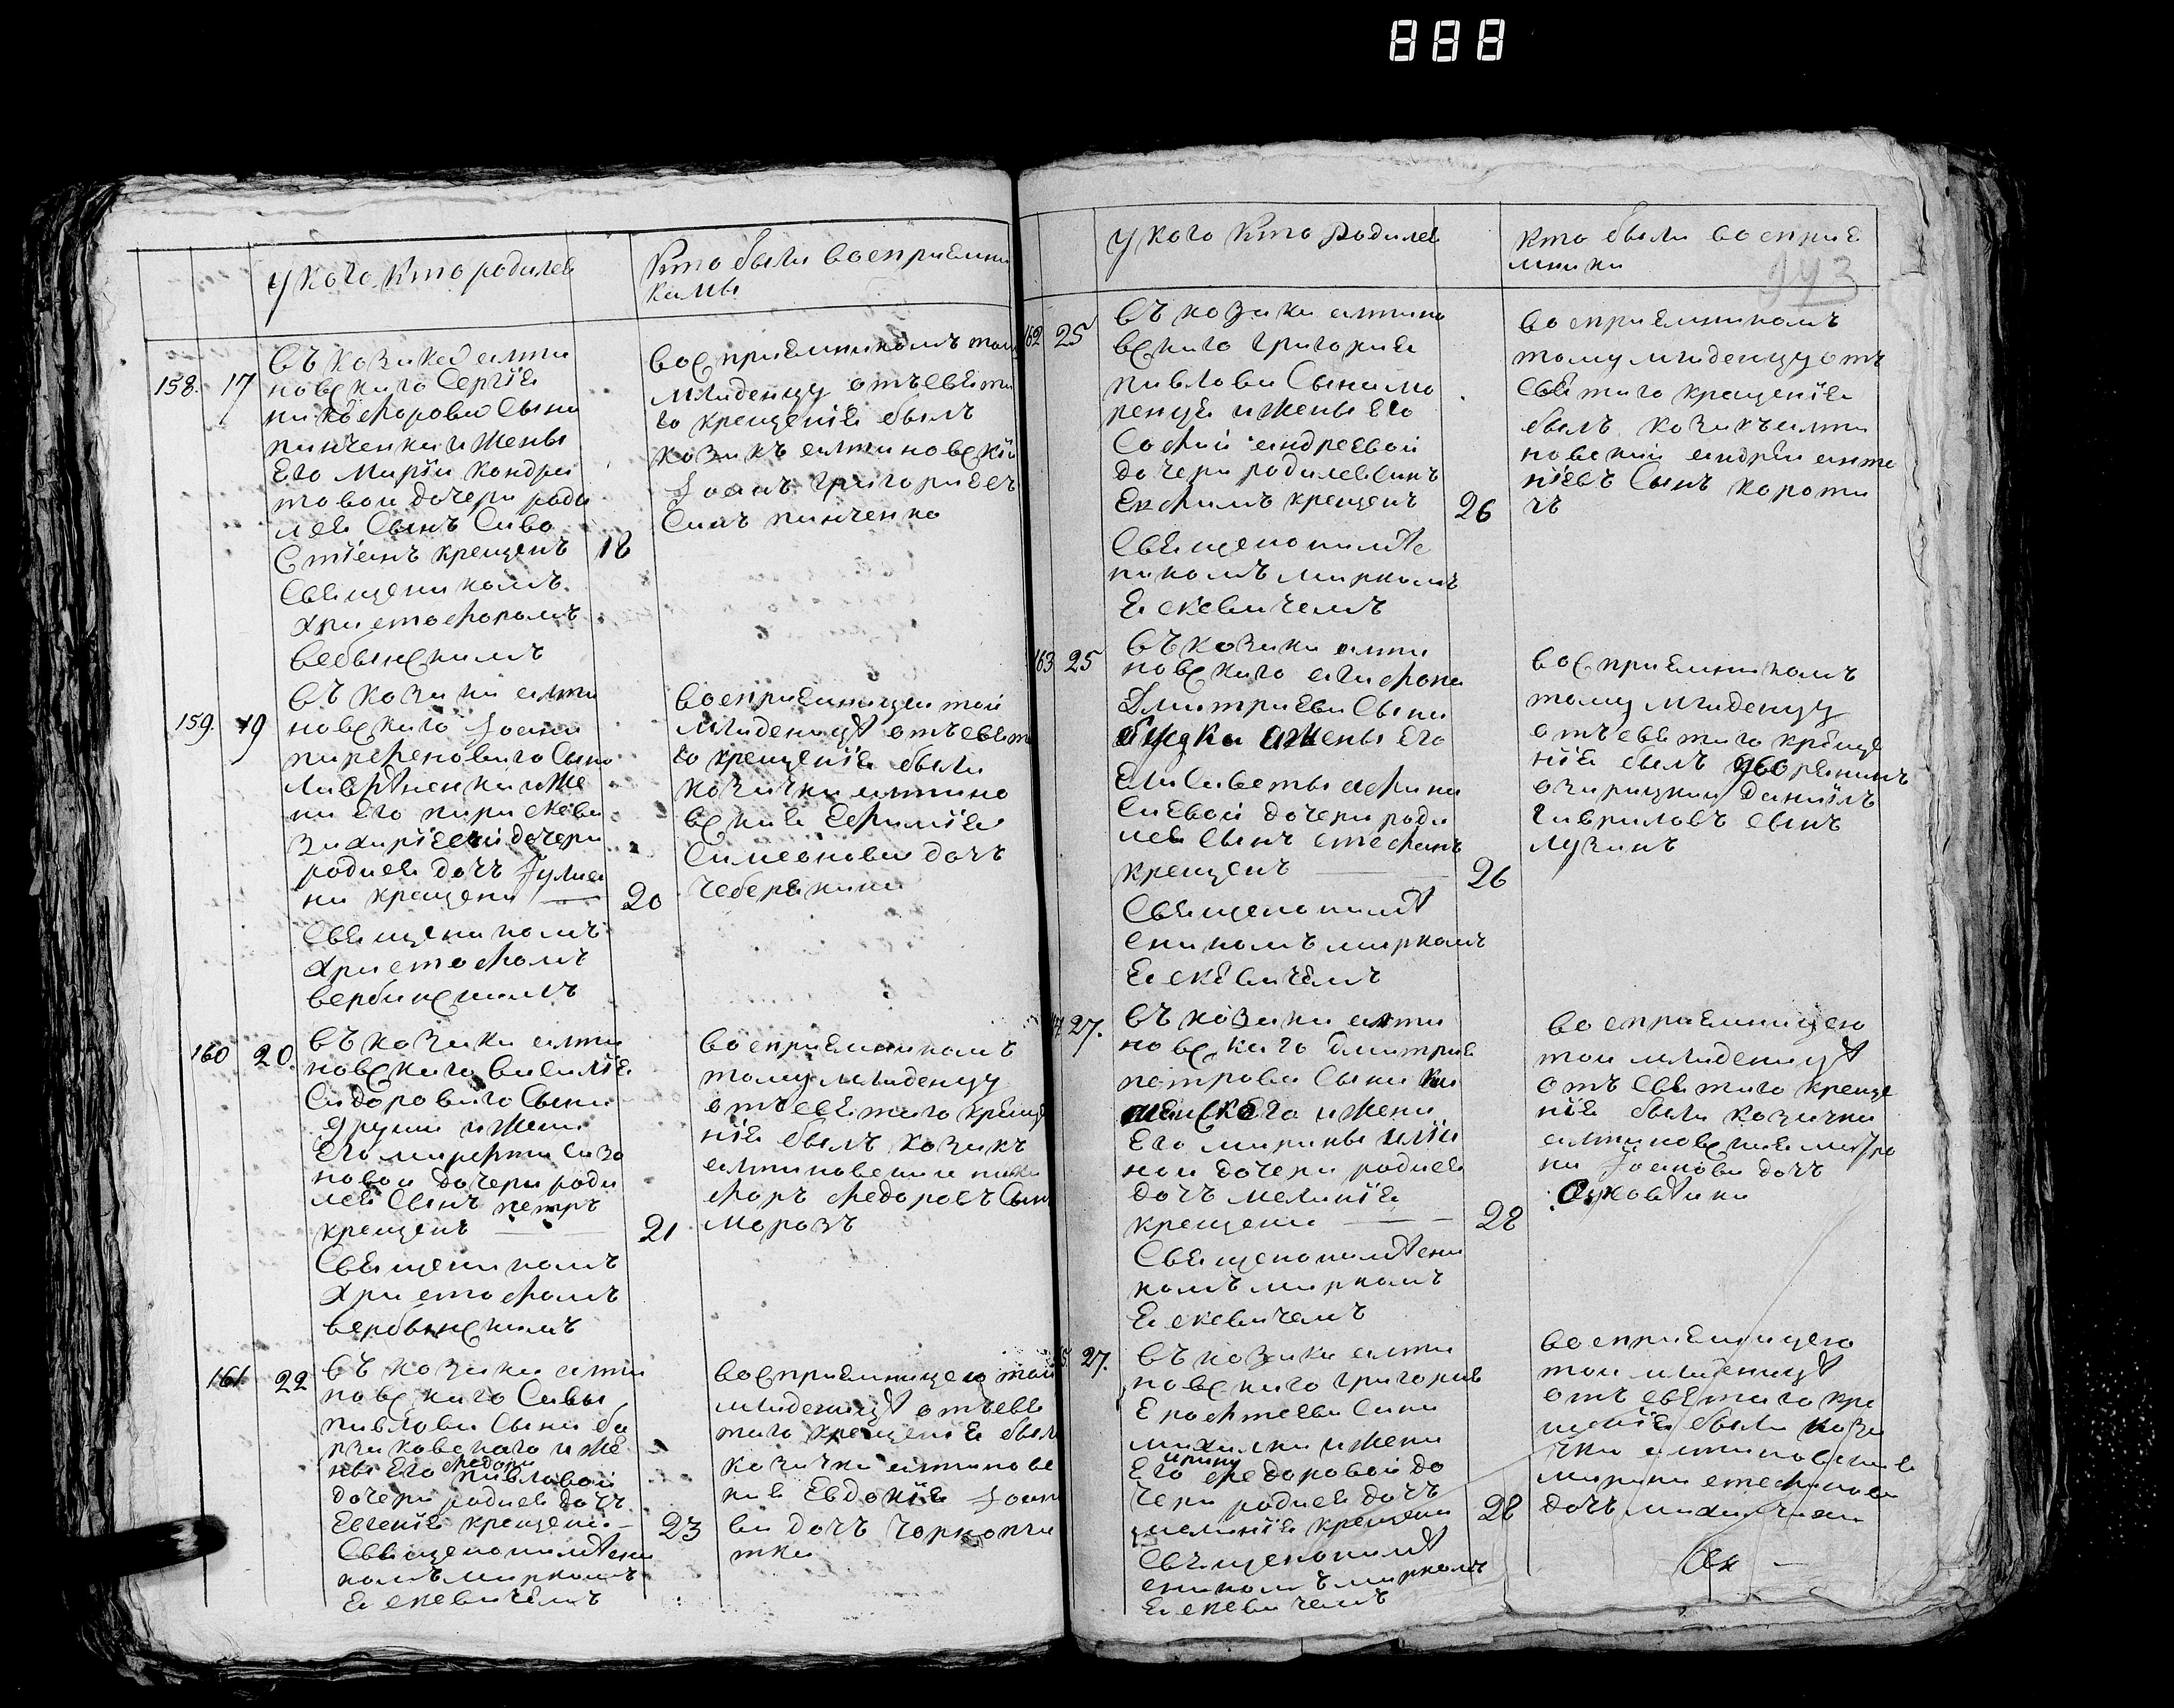 888
У кого кто родилса
Кто были восприемни
камы
158. 17
въ козака алти
новскаго Сергіа
никифорова Сына
панченка и жены
Его Маріи кондра
товой дочери роди
лса Сынъ Сава
Стіанъ крещенъ 18
Свѧщеникомъ
Христофоромъ
вербынскимъ
восприемникомъ тому
младенцу отъ свѧта
го крещеніѧ былъ
козакъ алтиновскій
Іоанъ григориевъ
Синъ панченко
159. 19
въ козака алти
новскаго Іоана
парфеноваго Сына
ни Его параскеви
захаріевой дочери
родиса дочь Іулиа
на крещена — 20
Свѧщеникомъ
Христофомъ
вербинскимъ
восприемницеи той
младеницѣ отъ свѧта
го крещеніѧ была
козачка алтино
вскаѧ Ефиміѧ
Симеонова дочь
чеберѧкина
160 20.
въ козака алти
новскаго василіѧ
Сидороваго Сына
Его марфи сазо
новой дочери роди
лсѧ Сынъ петръ
крещенъ — 21
Свѧщеникомъ
Христофомъ
вербынскимъ
восприемникомъ
тому младенцу
отъ свѧтаго креще
ніѧ былъ козакъ
алтиновский ники
форъ федоровъ Сын
морозъ
161 22
въ козака алти
новскаго Савы
павлова Сына бо
рчаковскаго и же
ны Его павловой
федори
дочери родисѧ дочь
Евгеніѧ крещена — 23
Свѧщенонамѣсни
комъ маркомъ
Еѧскевичемъ
восприемницею той
младеницѣ отъ свѧ
таго крещеніѧ была
козачка алтиновс
каѧ Евдокіѧ Іоан
ва дочь
тка
У кого кто родилсѧ
Кто были восприе
мники
943
162 25
въ козака алтино
вскаго григориѧ
павлова Сына мо
ренца и жены Его
Софии андреевой
дочери родилсѧ синъ
Евфимъ крещенъ 26
Свѧщенонамѣс
никомъ маркомъ
Еѧскевичемъ
восприемникомъ
тому младенцу отъ
свѧтаго крещеніѧ
былъ козакъ алти
новский андрей анто
ніевъ Сынъ короти
чъ
163 25
въ козака алти
новскаго агафона
Дмитриева Сына
и жены Его
Елисаветы афана
сиевой дочери роди
лсѧ Сынъ стефанъ
крещенъ — 26
Свѧщенонамѣ
сникомъ маркомъ
Еѧскевичемъ
восприемникомъ
тому младенцу
отъ свѧтаго креще
ніѧ былъ дворѧнинъ
даніилъ
гавриловъ сынъ
лузинъ
27.
въ козака алти
новскаго дмитриѧ
петрова Сына
и жени
Его марины
ной дочери родисѧ
дочь меланіѧ
крещена — 28
Свѧщенонамѣсни
комъ маркомъ
Еѧскевичемъ
восприемницею
той младеницѣ
отъ Свѧтаго креще
ніѧ была козачка
алтиновскаѧ матро
на Іоанова дочь
27.
въ козака алти
новскаго григориѧ
Ерофтеева Сина
михалки и жени
ирину
Его федоровой до
чери родисѧ дочь
меланіѧ крещена 28
Свѧщенонамѣ
сникомъ маркомъ
Еѧскевичемъ
восприемницею
той младеницѣ
отъ свѧтаго кре
щеніѧ была коза
чка алтиновскаѧ
марина стефанова
дочь